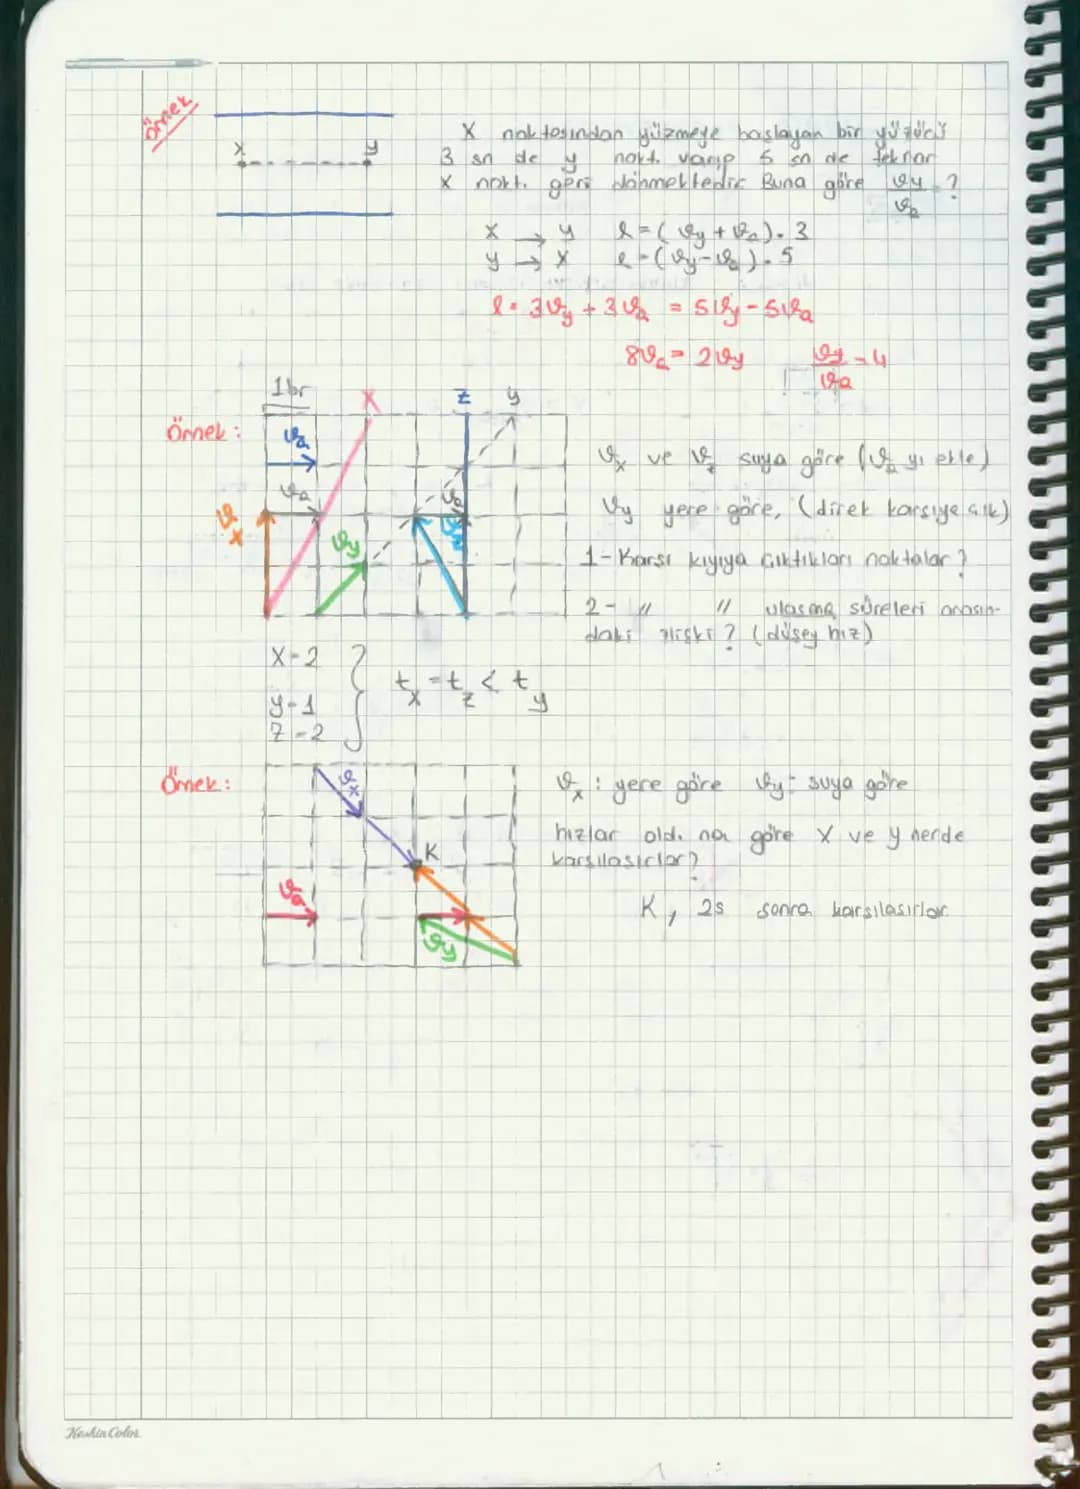 Örnek
X noktasından yüzmeye başlayan bir yüzücü
3 sn de y nokt. varıp 5 sn de tekrar
X nokt. geri dönmektedir. Buna göre ϑy/ϑa = ?
x y
X → y l = (ϑy + ϑa). 3
y → X l = (ϑy - ϑa). 5
l = 3ϑy + 3ϑa = 5ϑy - 5ϑa
8ϑa = 2ϑy ϑy/ϑa = 4
Örnek :
1br X Z y
ϑa
ϑa ϑa
ϑx ϑy ϑz
ϑx ve ϑz suya göre (ϑa yı ekle)
ϑy yere göre, (direk karşıya çık)
1- Karşı kıyıya çıktıkları noktalar ?
2- " " ulaşma süreleri arasın-
daki ilişki ? (düşey hız)
X-2
y-1
Z-2
tx = tz < ty
Örnek :
ϑx K
ϑa ϑy
ϑx : yere göre ϑy : suya göre
hızlar old. na göre X ve y nerde
karşılaşırlar ?
K, 2s sonra karşılaşırlar
Keskin Color